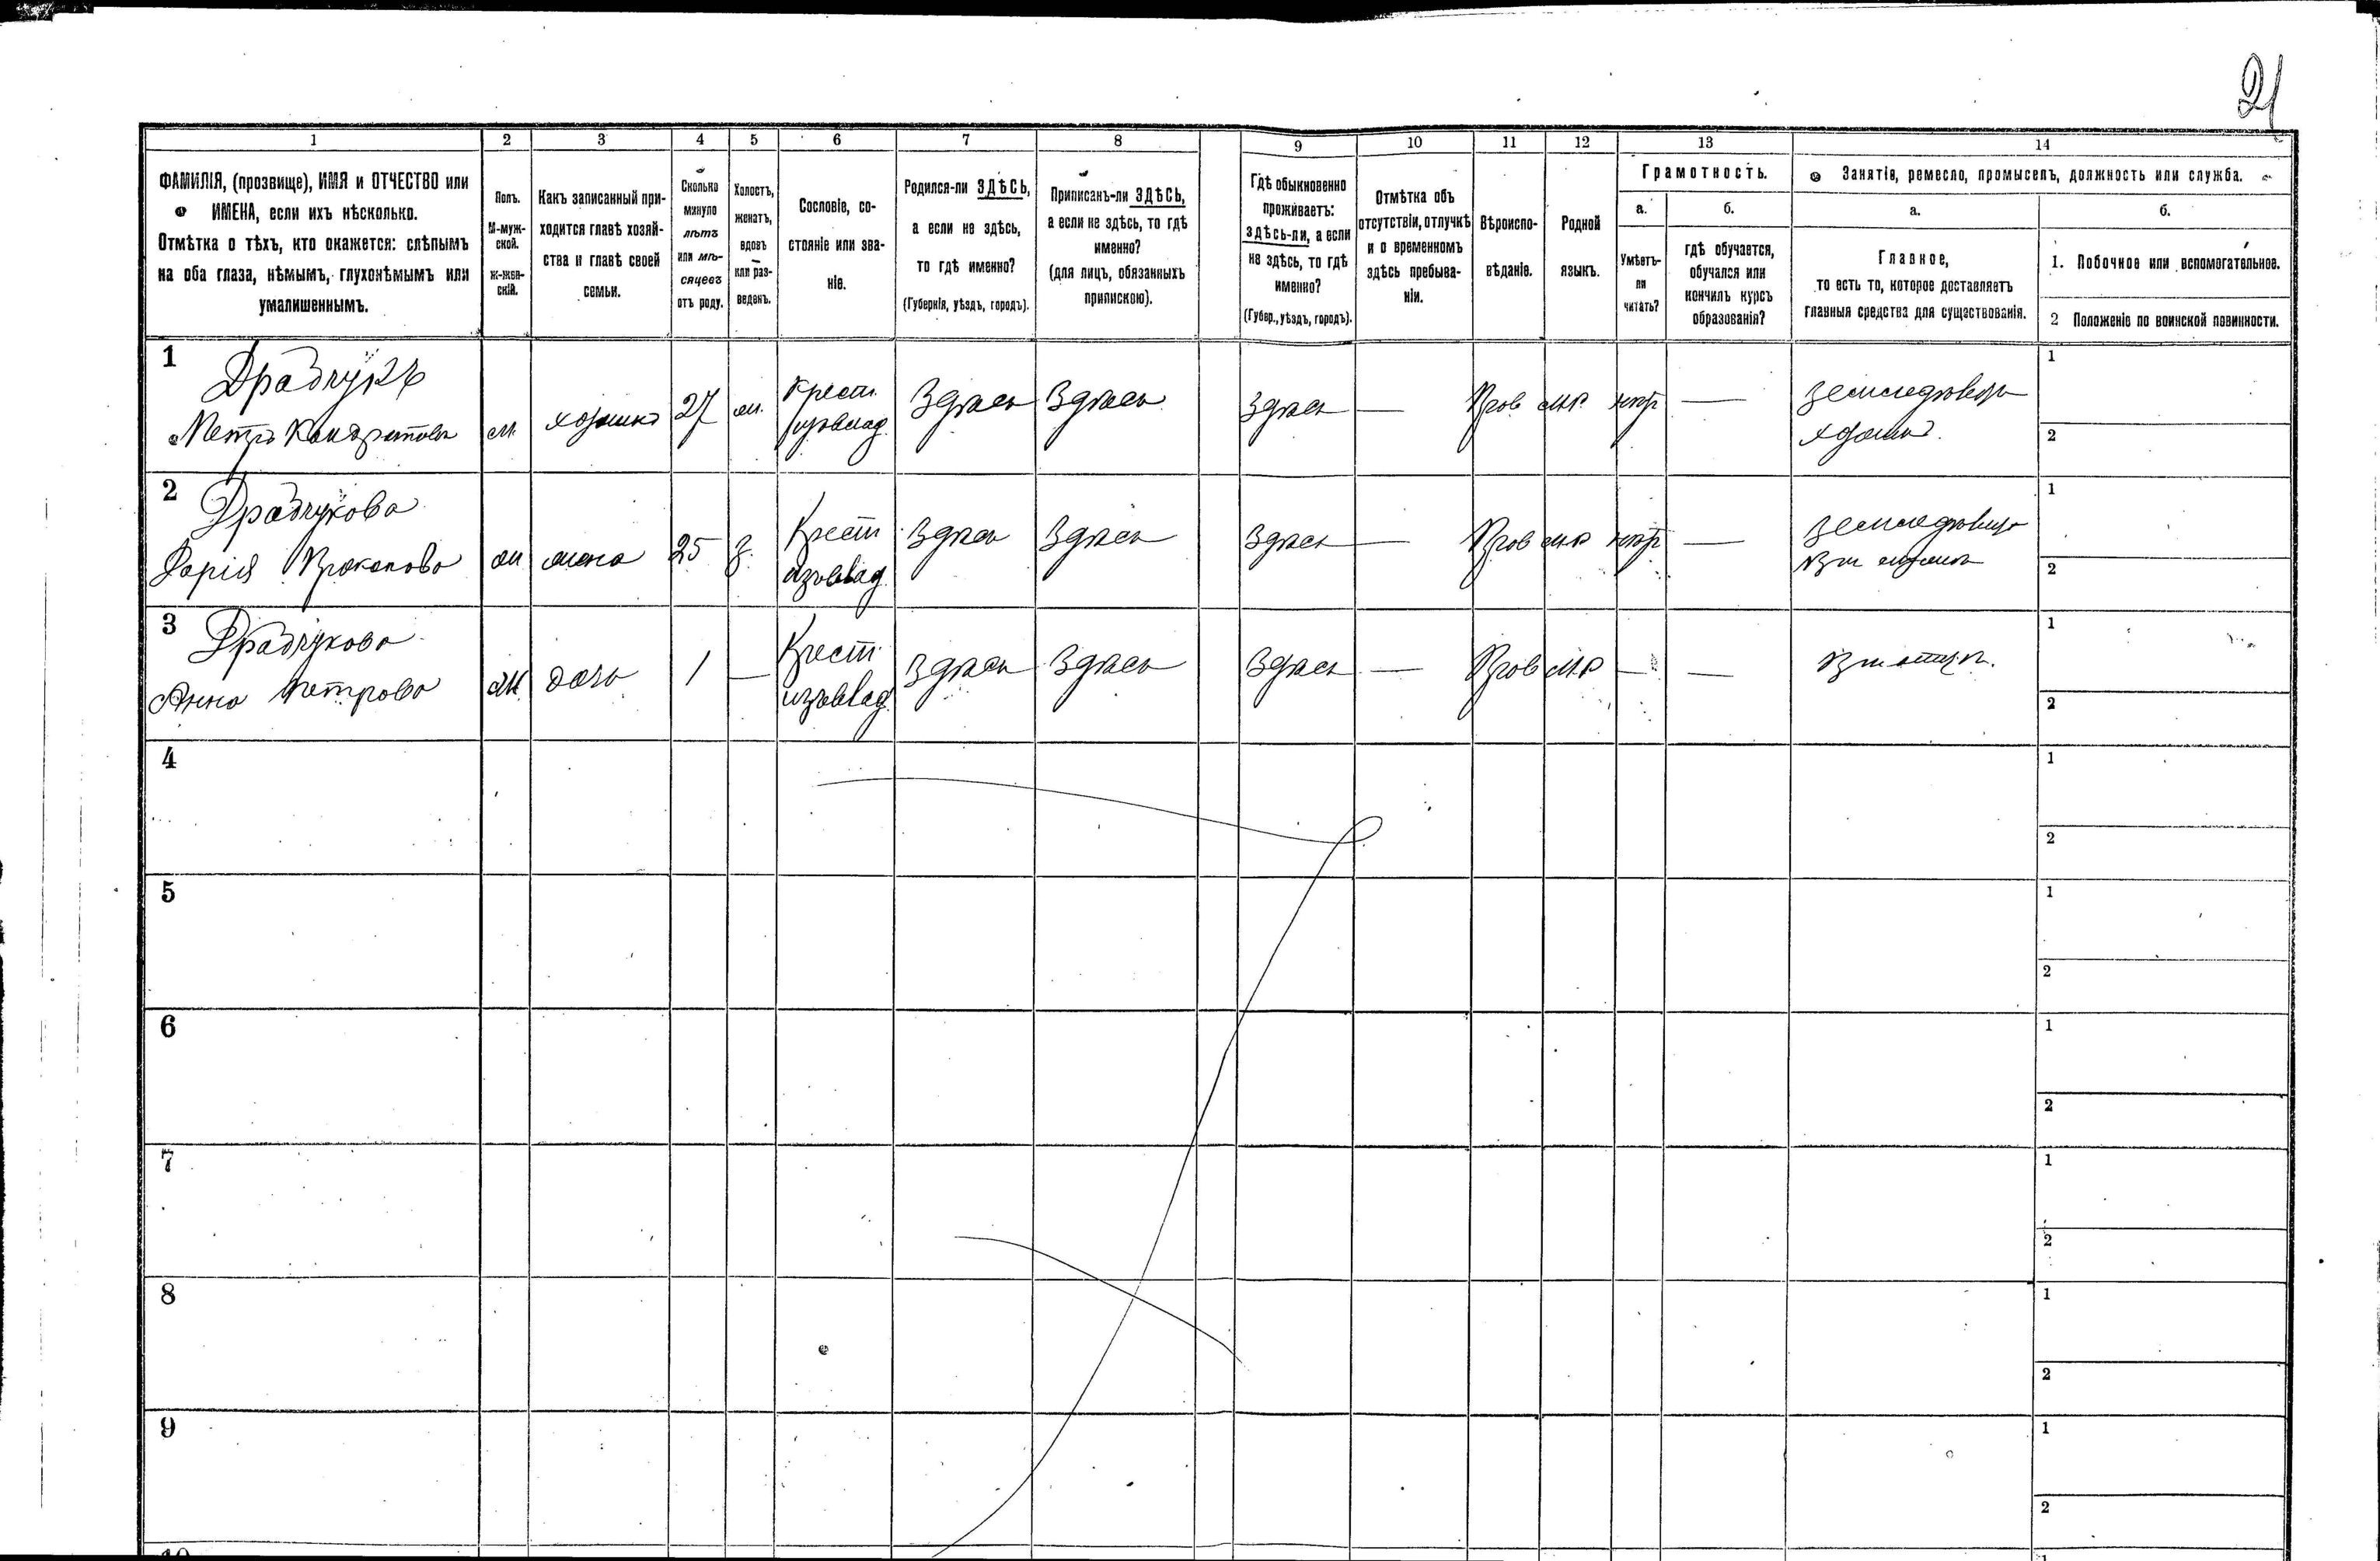 21
1 2 3 4 5 6 7 8 9 10 11 12 13 14
ФАМИЛІЯ, (прозвище), ИМЯ и ОТЧЕСТВО или
ИМЕНА, если ихъ нѣсколько.
Отмѣтка о тѣхъ, кто окажется: слѣпымъ
на оба глаза, нѣмымъ, глухонѣмымъ или
умалишеннымъ.
Полъ.
М-муж-
ской.
ж-жен-
скій.
Какъ записанный при-
ходится главѣ хозяй-
ства и главѣ своей
семьи.
Сколько
минуло
лѣтъ
или мѣ-
сяцевъ
отъ роду.
Холостъ,
женатъ,
вдовъ
или раз-
веденъ.
Сословіе, со-
стояніе или зва-
ніе.
Родился-ли ЗДѢСЬ,
а если не здѣсь,
то гдѣ именно?
(Губернія, уѣздъ, городъ).
Приписанъ-ли ЗДѢСЬ,
а если не здѣсь, то гдѣ
именно?
(для лицъ, обязанныхъ
припискою).
Гдѣ обыкновенно
проживаетъ:
здѣсь-ли, а если
не здѣсь, то гдѣ
именно?
(Губер., уѣздъ, городъ).
Отмѣтка объ
отсутствіи, отлучкѣ
и о временномъ
здѣсь пребыва-
ніи.
Вѣроиспо-
вѣданіе.
Родной
языкъ.
Грамотность.
а.
Умѣетъ-
ли
читать?
б.
гдѣ обучается,
обучался или
кончилъ курсъ
образованія?
Занятіе, ремесло, промыселъ, должность или служба.
а.
Главное,
то есть то, которое доставляетъ
главныя средства для существованія.
б.
1. Побочное или вспомогательное.
2 Положеніе по воинской повинности.
1 Драдчукъ
Петръ Кондратовъ
м хозяинъ 27 ж. Крест. Здѣсь Здѣсь Здѣсь — Прав мр — земледѣлецъ
хозяинъ
1
2
2 Драдчукова
Дарія Прокопова
ж жена 25 з. Крест Здѣсь Здѣсь Здѣсь — Прав мр —
1
2
3 Драдчукова
Анна Петрова
ж дочь 1 — Крест Здѣсь Здѣсь Здѣсь — Прав мр — — При отцѣ.
1
2
4
1
2
5
1
2
6
1
2
7
1
2
8
1
2
9
1
2
10
1